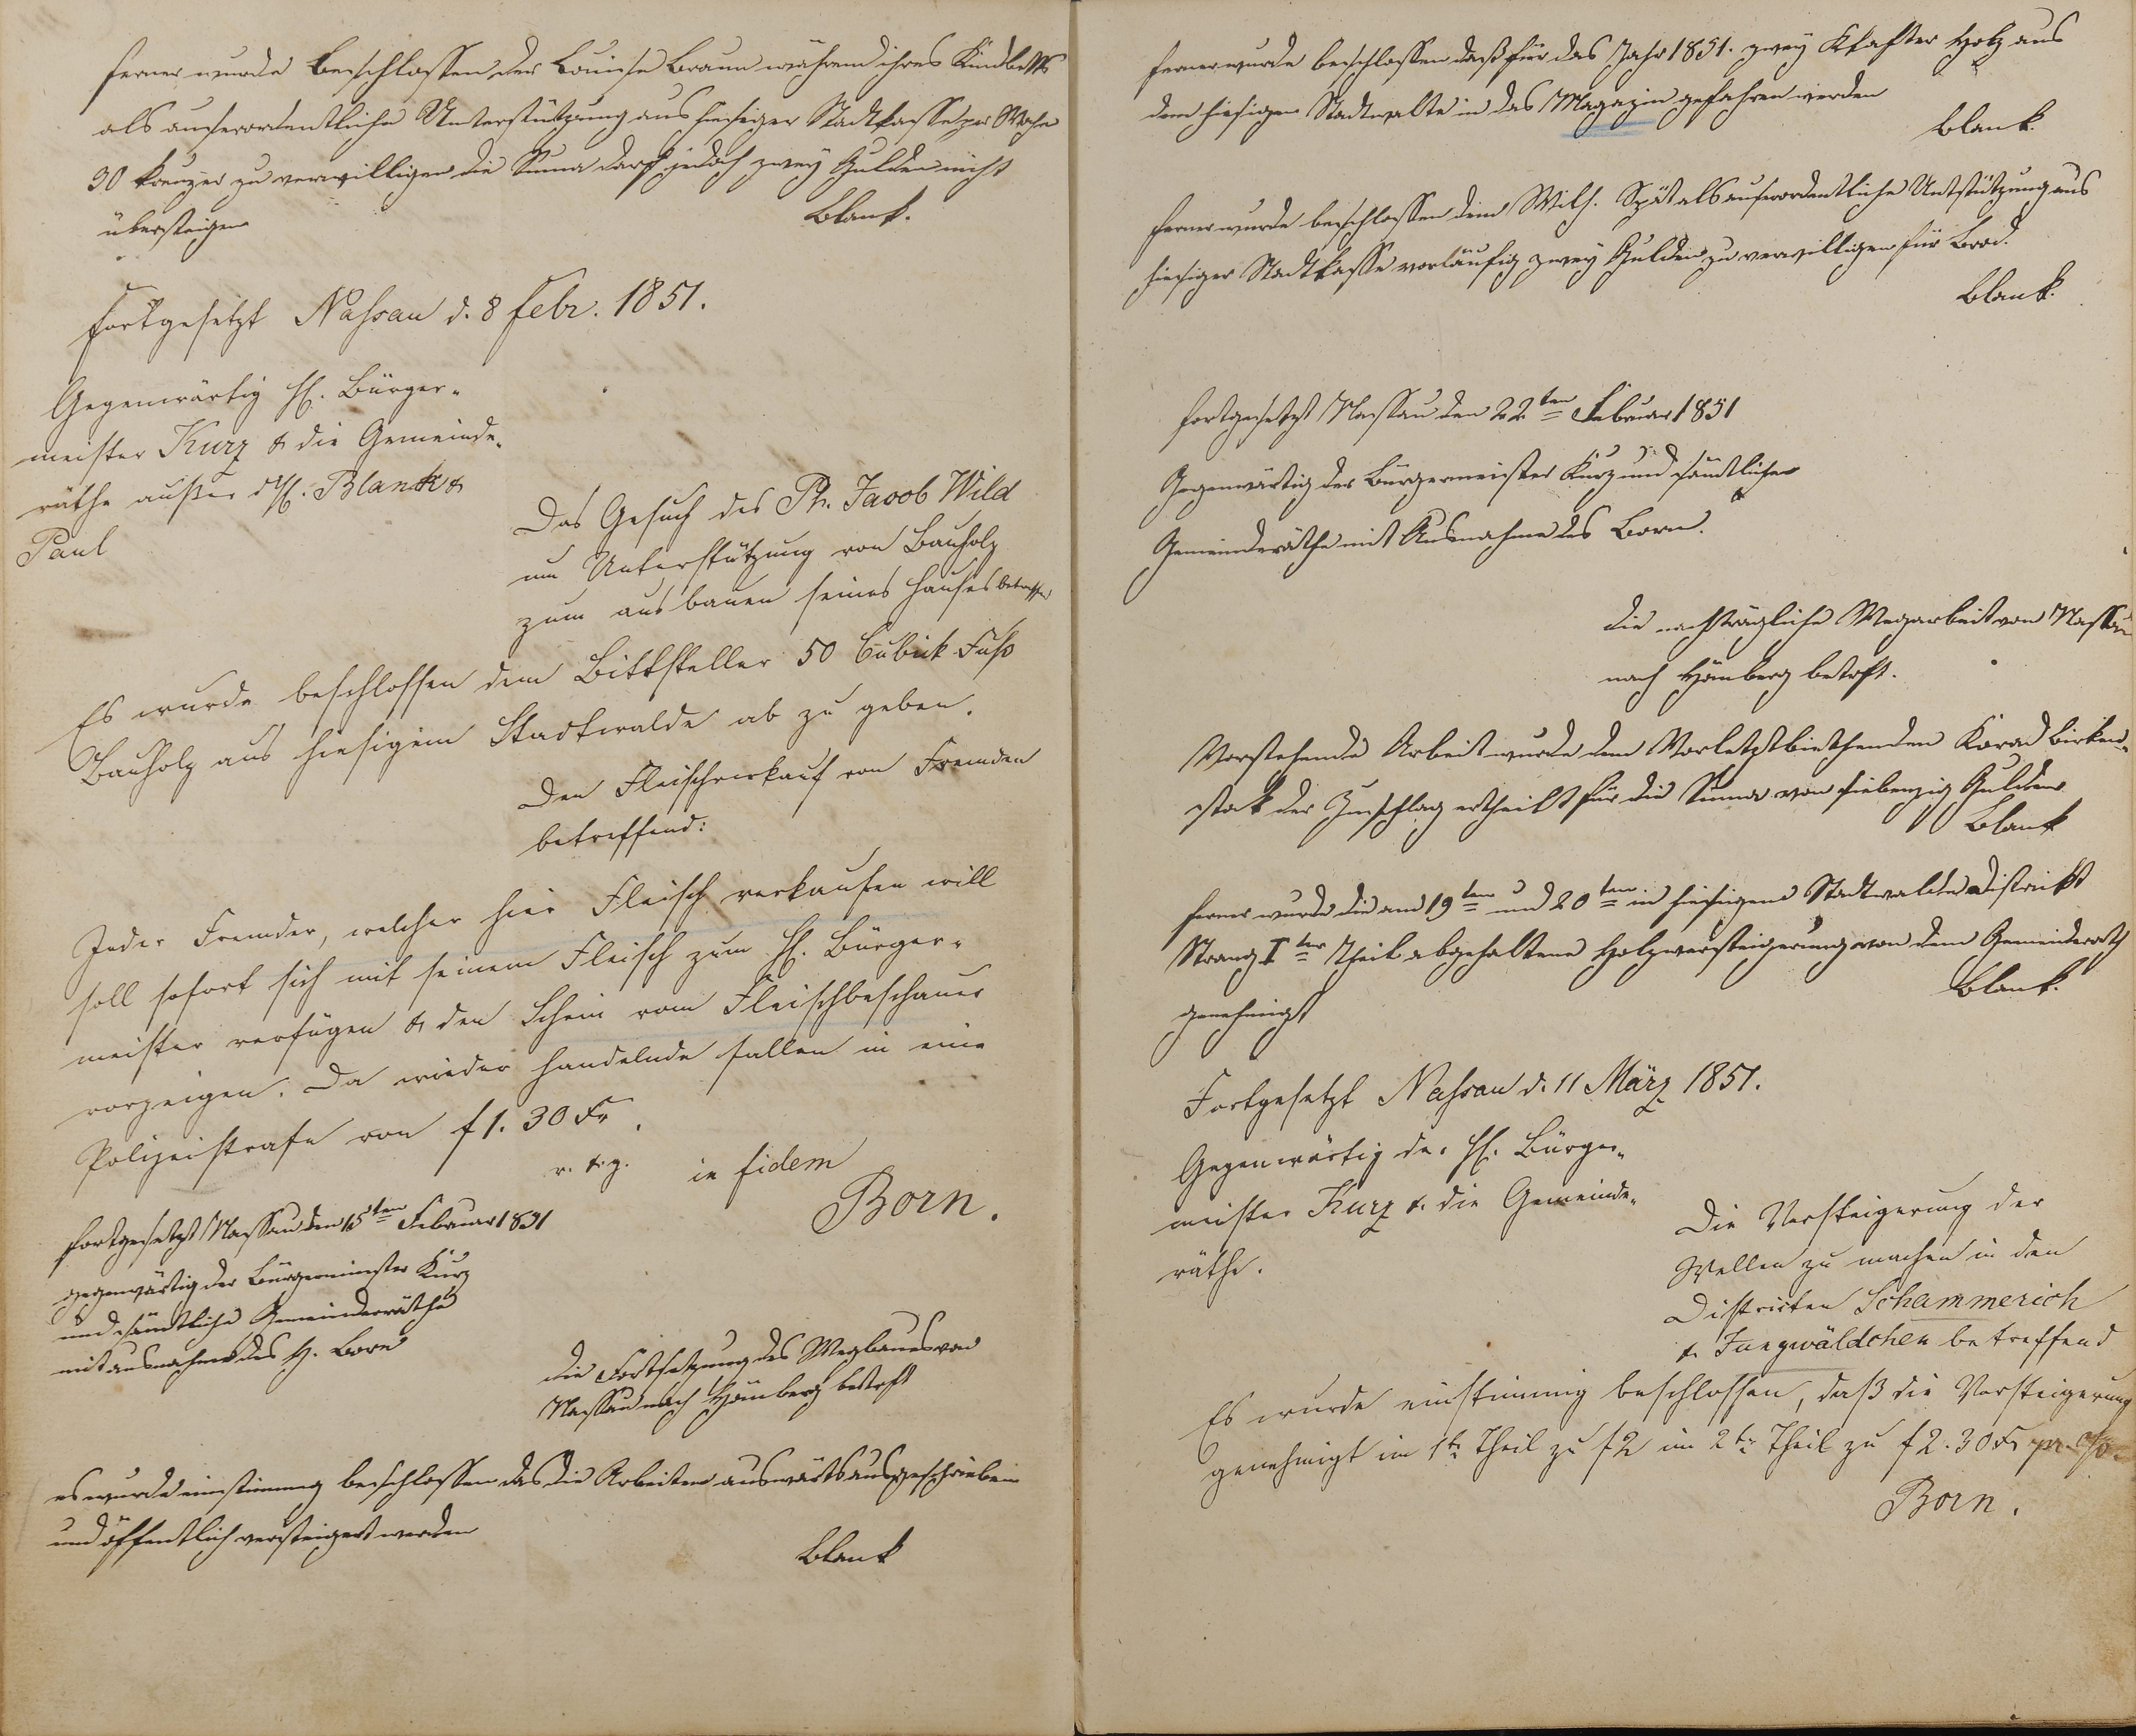 ferner wurde beschlossen der Louise Braun während ihres Kindbetts
als auserordentliche Unterstützung aus hiesiger Stadtkasse per Woche
30 Kreuzer zu verwilligen die Suma darf jedoch zwey Gulden nicht
übersteigen
Blank.
Fortgesetzt Nassau d. 8 Febr. 1851.
Gegenwärtig H. Bürger-
meister Kurz & die Gemeinde-
räthe außer d. H. Blank &
Paul
Das Gesuch des Ph. Jacob Wild
um Unterstützung von Bauholz
zum ausbauen seines Hauses betreffend
Es wurde beschlossen dem Bittsteller 50 Cubick Fuß
Bauholz aus hiesigem Stadtwalde ab zu geben.
Den Fleischverkauf von Fremden
betreffend:
Jeder Fremder, welcher hier Fleisch verkaufen will
soll sofort sich mit seinem Fleisch zum H. Bürger-
meister verfügen & den Schein vom Fleischbeschauer
vorzeigen. Da wieder handelnde fallen in eine
Polizeistrafe von f 1. 30 Kr.
in fidem
Born.
fortgesetzt Nassau den 15ten Februar 1851
gegenwärtig der Bürgermeister Kurz
und sämtliche Gemeinderäthe
mit ausnahme des H. Born
die Fortsetzung des Wegbaues von
Nassau nach Hömberg betreft
es wurde einstimmig beschlossen das die Arbeiten auswärts ausgeschrieben
und öffentlich versteigert werden
Blank
ferner wurde beschlossen daß für das Jahr 1851. zwey Klafter Holz aus
dem hiesigen Stadtwalte in das Magazin gefahren werden
Blank.
ferner wurde beschlossen dem Wilh. Spät als auserordentliche Untstützung aus
hiesiger Stadtkasse vorläufig zwey Gulden zu verwilligen für Brod.
Blank.
fortgesetzt Nassau den 22ten Februar 1851
Gegenwärtig der Bürgermeister Kurz und sämtliche
Gemeinderäthe mit Ausnahme des Born.
die nachträgliche Wegarbeit von Nassau
nach Hömberg betreft.
Vorstehende Arbeit wurde dem Vorletztbiethenden Konrad Birken-
stok der Zuschlag ertheilt für die Suma von siebenzig Gulden
Blank
ferner wurde die am 19ten und 20ten in hiesigem Stadtwalde Distrikt
Strang Iter Theil abgehaltene Holzversteigerung von dem Gemeinderath
genehmigt
Blank.
Fortgesetzt Nassau d. 11 März 1851.
Gegenwärtig der H. Bürger-
meister Kurz & die Gemeinde-
räthe.
Die Versteigerung der
Wellen zu machen in den
Districten Schammerich
& Jungwäldchen betreffend
Es wurde einstimmig beschlossen, daß die Versteigerung
genehmigt im 1tr Theil zu f 2 im 2tr Theil zu f 2. 30 Kr
Born.